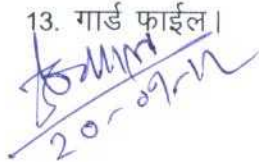 13. गार्ड फाईल।
20-09-12